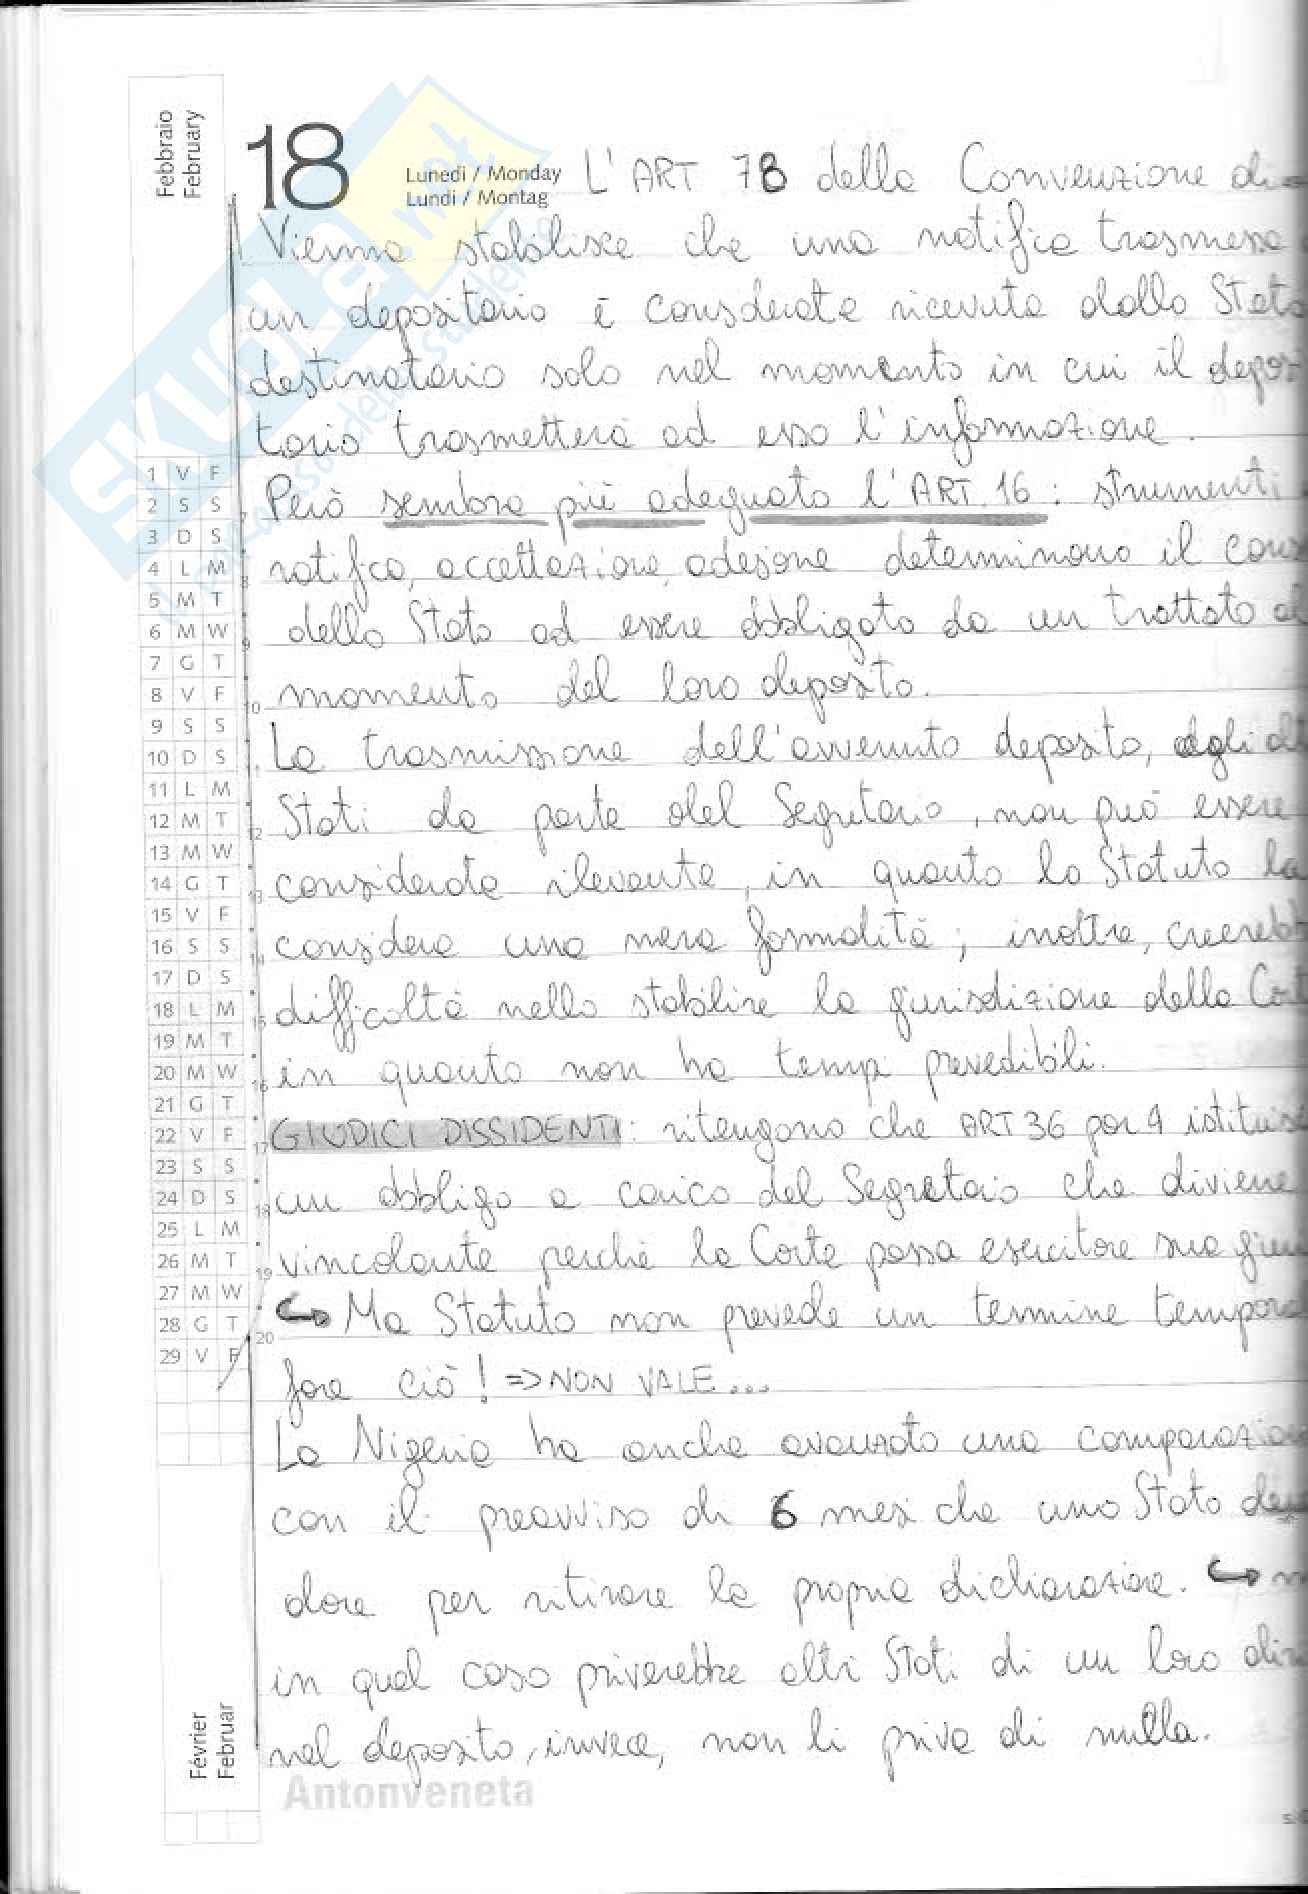 Febbraio
February
18
Lunedì / Monday
Lundi / Montag
L'ART 78 della Convenzione di
Vienna stabilisce che una notifica trasmessa
un depositario è considerata ricevuta dallo Stato
destinatario solo nel momento in cui il deposi
tario trasmetterà ad esso l'informazione.
Però sembra più adeguato l'ART. 16: strumenti
ratifica, accettazione, adesione determinano il cons
dello Stato ad essere obbligato da un trattato al
momento del loro deposito.
La trasmissione dell'avvenuto deposito, agli alt
Stati da parte del Segretario, non può essere
considerata rilevante, in quanto lo Statuto la
considera una mera formalità; inoltre, creereb
difficoltà nello stabilire la giurisdizione della Cort
in quanto non ha tempi prevedibili.
GIUDICI DISSIDENTI: ritengono che ART 36 par 4 istituis
un obbligo a carico del Segretario che diviene
vincolante perchè la Corte possa esercitare sua giuri
↪ Ma Statuto non prevede un termine tempora
fare ciò! => NON VALE...
La Nigeria ha anche avanzato una comparazion
con il preavviso di 6 mesi che uno Stato de
dare per ritirare la propria dichiarazione. ↪
in qual caso priverebbe altri Stati di un loro diri
nel deposito, invece, non li priva di nulla.
1 V F
2 S S
3 D S
4 L M
5 M T
6 M W
7 G T
8 V F
9 S S
10 D S
11 L M
12 M T
13 M W
14 G T
15 V F
16 S S
17 D S
18 L M
19 M T
20 M W
21 G T
22 V F
23 S S
24 D S
25 L M
26 M T
27 M W
28 G T
29 V F
7
8
9
10
11
12
13
14
15
16
17
18
19
20
Février
Februar
Antonveneta
SKUOLA.net